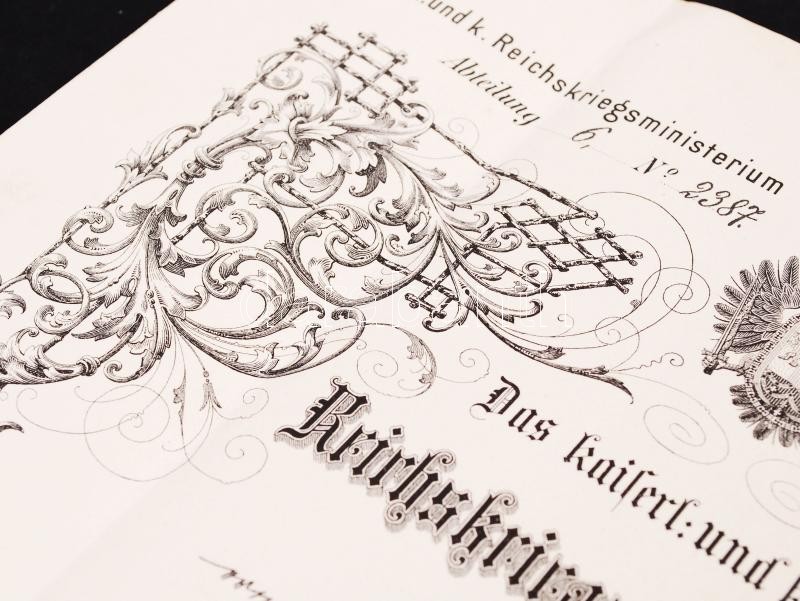 .und k. Reichskriegsministerium
Abteilung 6, Nº 2387.
Das kaiserl: und k
Reichskrie